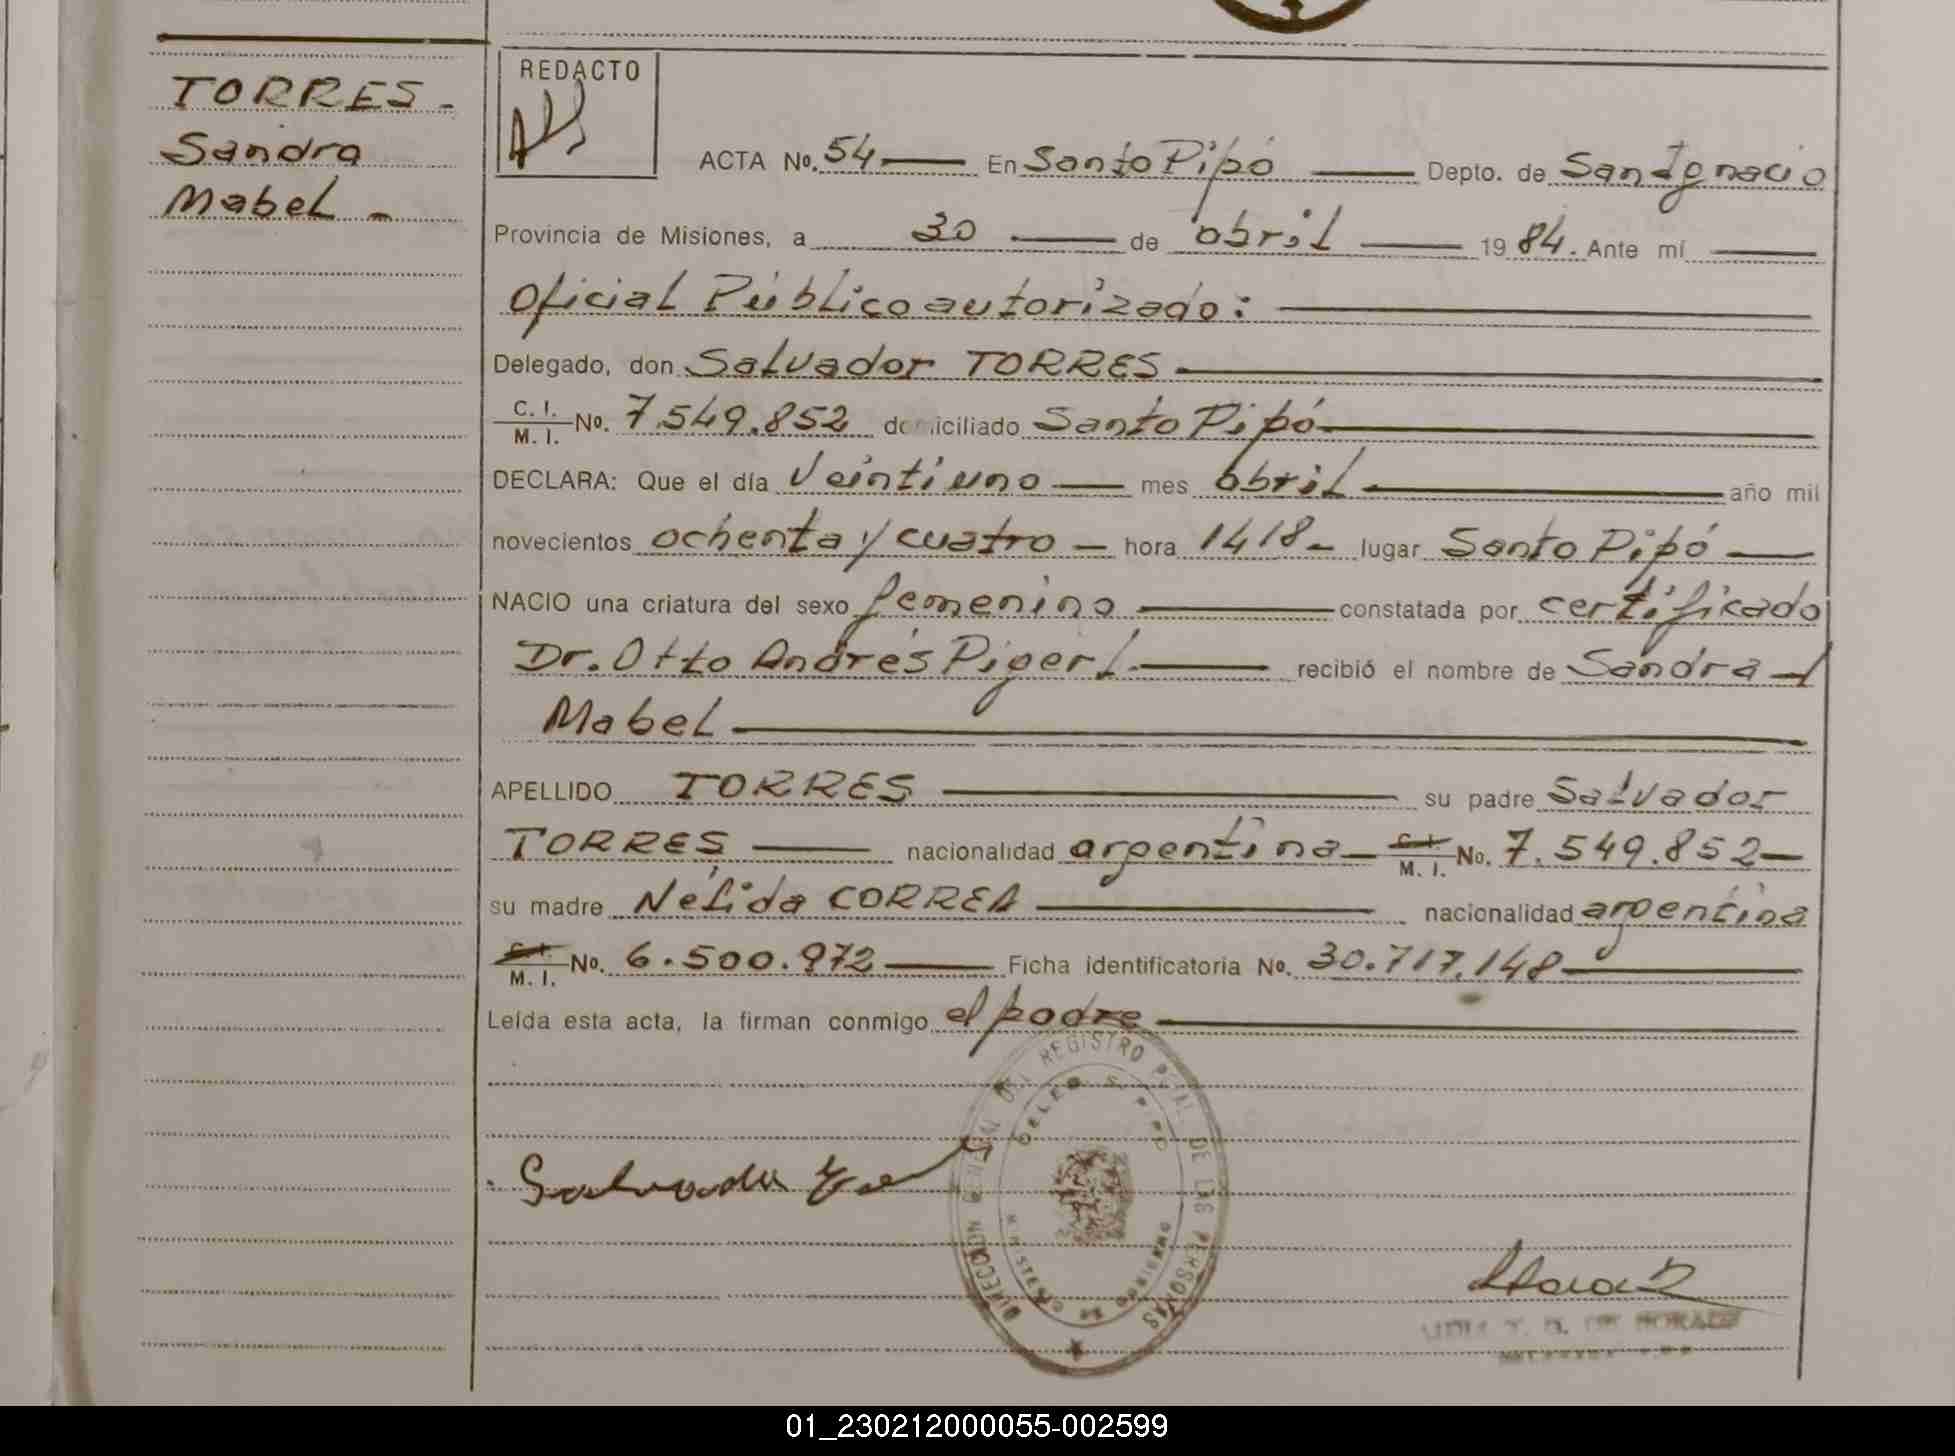 TORRES -
Sandra
Mabel -
REDACTO
ACTA No. 54 En Santo Pipó Depto. de San Ignacio
Provincia de Misiones, a 30 de abril 1984. Ante mí
Oficial Público autorizado:
Delegado, don Salvador TORRES
C. I. / M. I. No. 7.549.852 domiciliado Santo Pipó
DECLARA: Que el día Veintiuno mes abril año mil
novecientos ochenta y cuatro - hora 1418 - lugar Santo Pipó
NACIO una criatura del sexo femenino constatada por certificado
Dr. Otto Andrés Pigerl recibió el nombre de Sandra
Mabel
APELLIDO TORRES su padre Salvador
TORRES nacionalidad argentina - C. I. / M. I. No. 7.549.852
su madre Nélida CORREA nacionalidad argentina
C. I. / M. I. No. 6.500.972 Ficha identificatoria No. 30.717.148
Leída esta acta, la firman conmigo el padre
DIRECCION GENERAL DEL REGISTRO PCIAL DE LAS PERSONAS
DELEG. S. PIPO
MINISTERIO DE GOBIERNO
Salvador
01_230212000055-002599